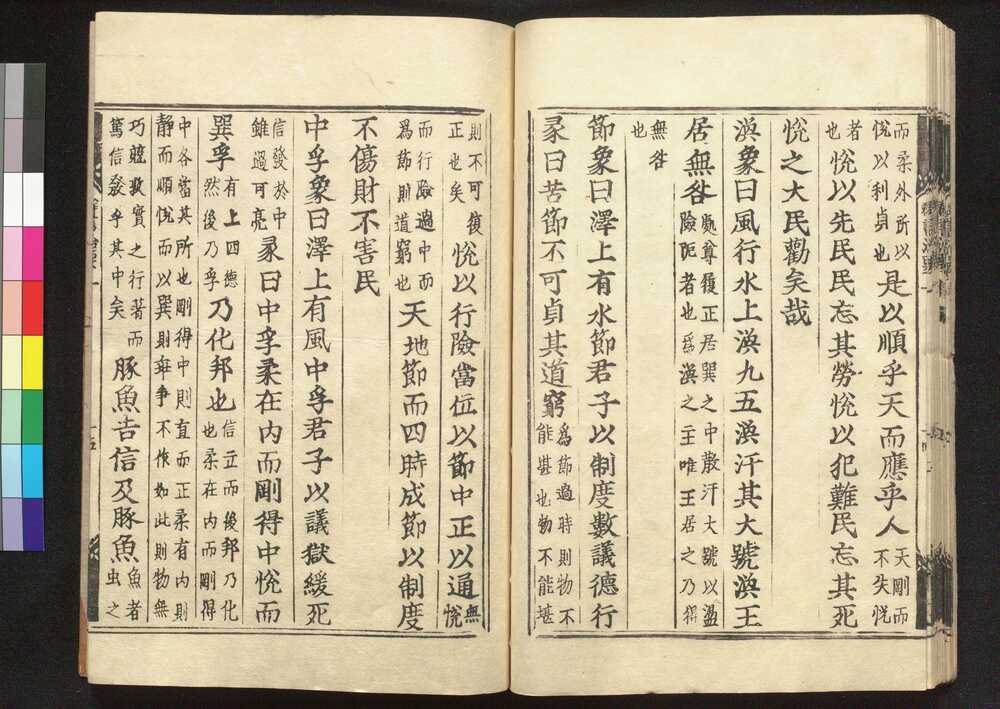 而柔外所以天剛而
悅以利貞也不失悅
是以順乎天而應乎人
者也
悅以先民民忘其勞悅以犯難民忘其死
悅之大民勸矣哉
渙象曰風行水上渙九五渙汗其大號渙王
居無咎
處尊履正居巽之中散汗大號以盪
險阨者也爲渙之主唯王居之乃得
無咎
也
節象曰澤上有水節君子以制度數議德行
彖曰苦節不可貞其道窮
爲節過時則物不
能堪也物不能堪
則不可復
正也矣
悅以行險當位以節中正以通
無悅
而行險過中而
爲節則道窮也
天地節而四時成節以制度
不傷財不害民
中孚象曰澤上有風中孚君子以議獄緩死
信發於中
雖過可亮
彖曰中孚柔在內而剛得中悅而
巽孚
有上四德
然後乃孚
乃化邦也
信立而後邦乃化
也柔在內而剛得
中各當其所也剛得中則直而正柔有內則
靜而順悅而以巽則乖爭不作如此則物無
巧競敦實之行著而
篤信發乎其中矣
豚魚吉信及豚魚
魚者
虫之